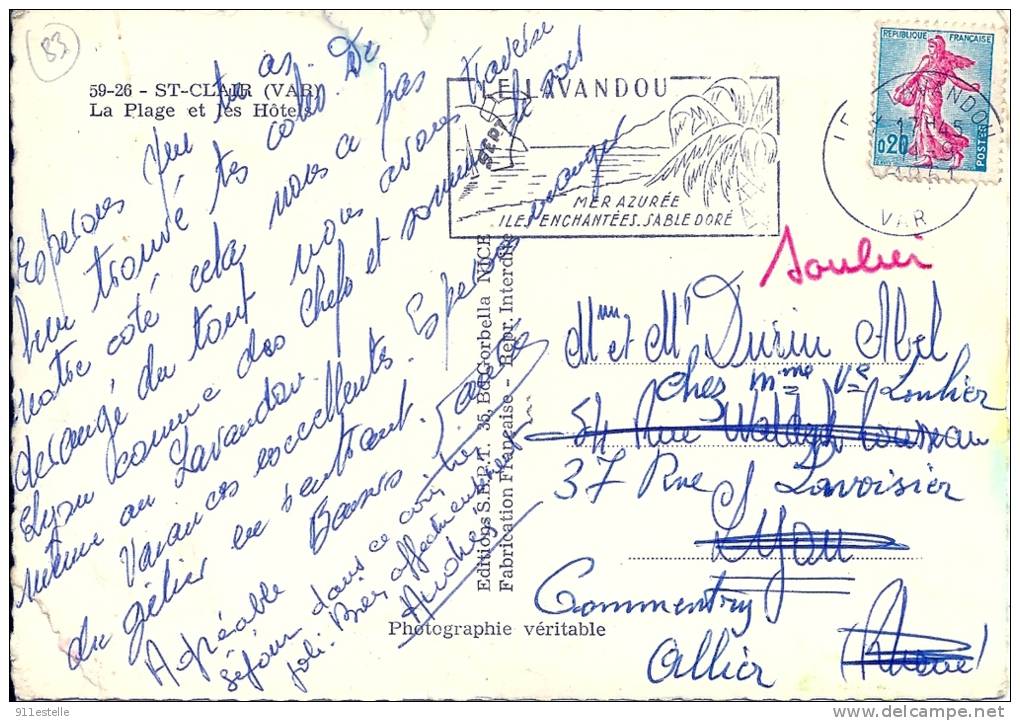 83
59-26 - ST-CLAIR (VAR)
La Plage et les Hôtels
Espérons que tu as
bien trouvé tes colis. De
notre côté cela nous a pas
dérangé du tout nous avons traversé
Lyon comme des chefs et sommes le soir
même au Lavandou.
Vacances excellentes. Espérons manger
du gélier en rentrant.
Baisers
Agréable
séjour dans ce coin très
joli. Bien affectueusement
Andrée
Editions S.E.P.T. 35, Bd Gorbella NICE
Fabrication Française - Repr. Interdite
Photographie véritable
LE LAVANDOU
MER AZURÉE
ILES ENCHANTÉES. SABLE DORÉ
REPUBLIQUE FRANÇAISE
0,20
POSTES
LAVANDOU
17H45
VAR
Soulier
Mme et Mr Durin Abel
chez Mme Vve Soulier
54 Rue Waldeck Rousseau
37 Rue Lavoisier
Lyon
Commentry
Allier (Rhône)
911estelle
www.delcampe.net